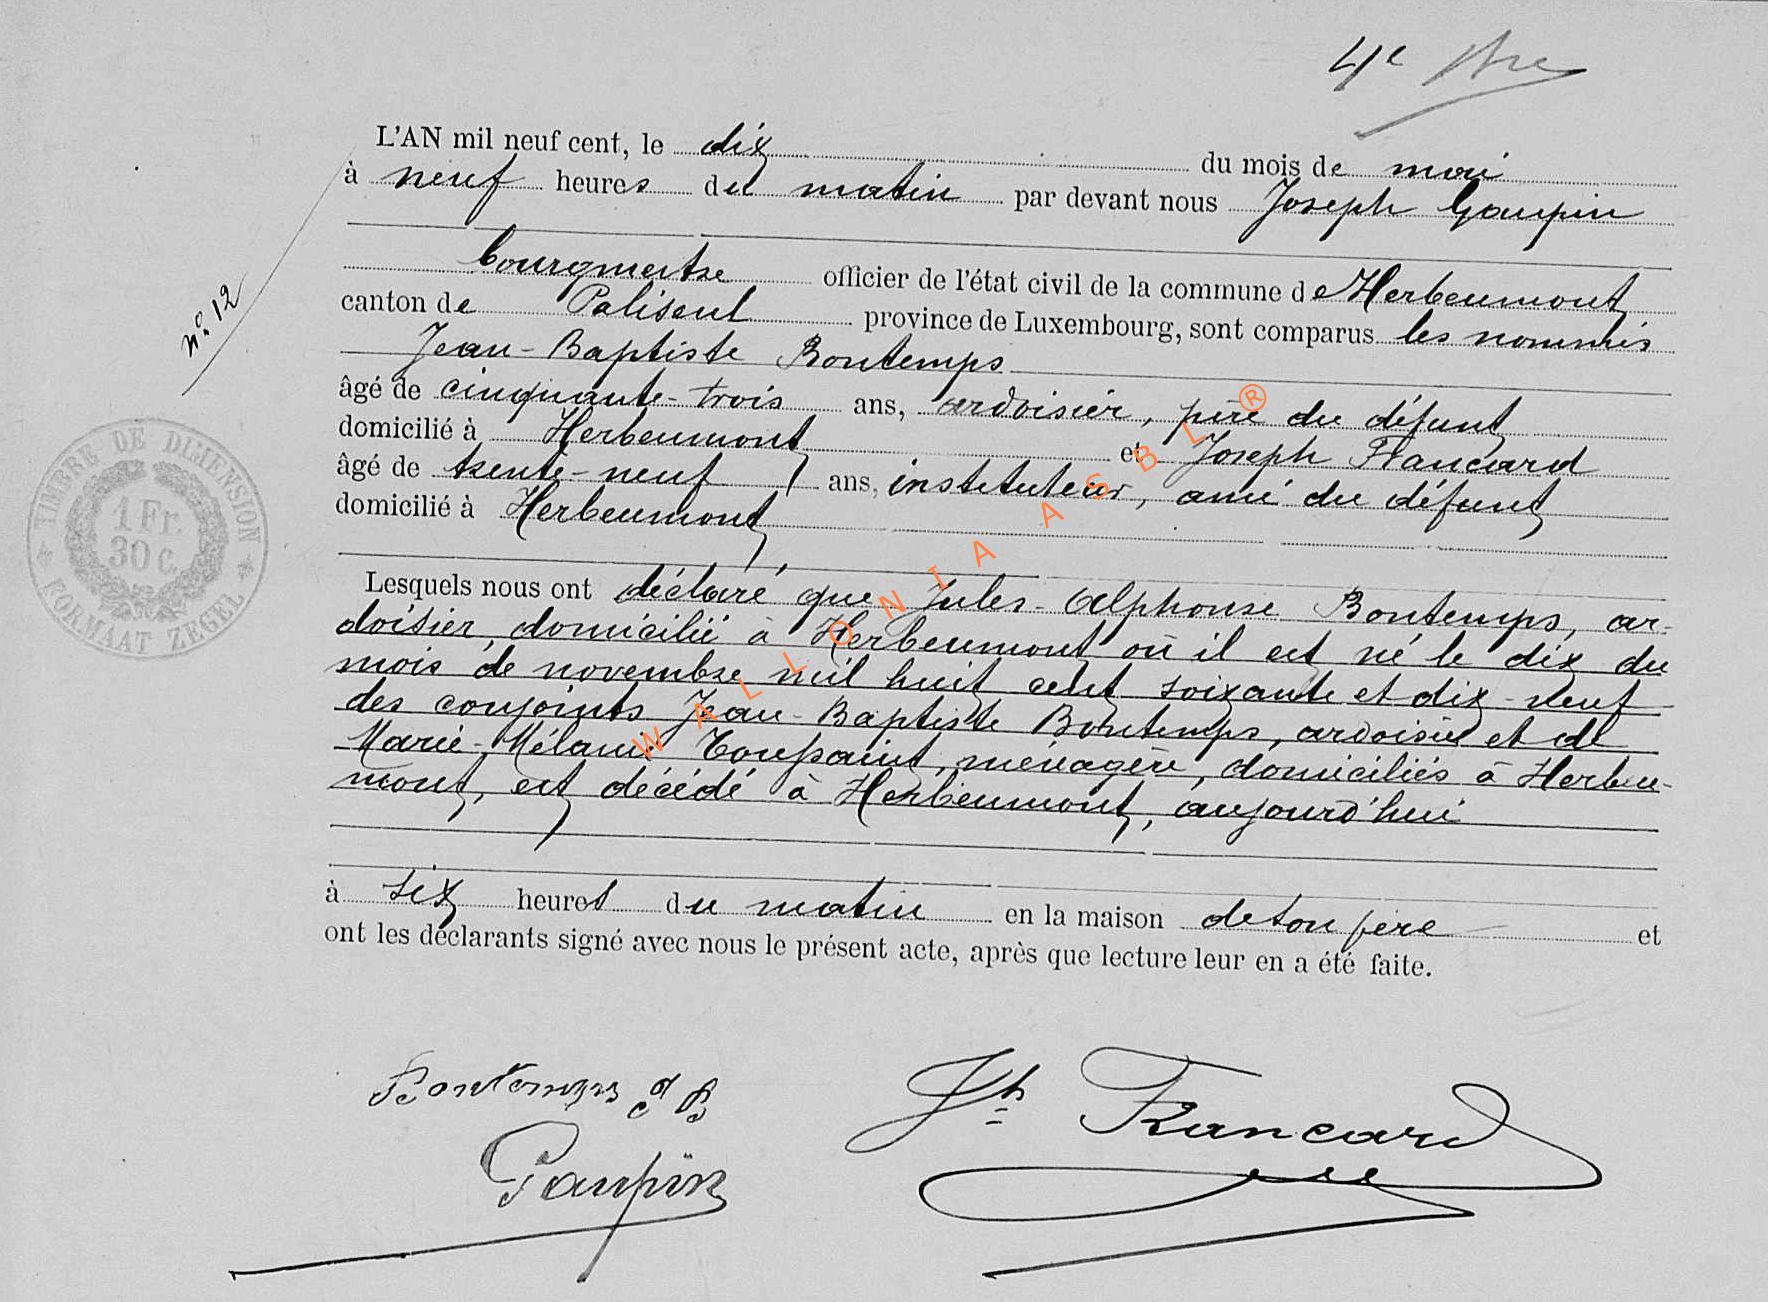 4e
L'AN mil neuf cent, le dix du mois de mai
à neuf heures du matin par devant nous Joseph Gaupin
bourgmestre officier de l'état civil de la commune de Herbeumont
canton de Paliseul province de Luxembourg, sont comparus les nommés
Jean-Baptiste Bontemps
âgé de cinquante-trois ans, ardoisier, père du défunt
domicilié à Herbeumont et Joseph Francard
âgé de trente-neuf ans, instituteur, ami du défunt
domicilié à Herbeumont
n° 12
TIMBRE DE DIMENSION
1 Fr.
30 c.
FORMAAT ZEGEL
Lesquels nous ont déclaré que Jules-Alphonse Bontemps, ar-
doisier, domicilié à Herbeumont où il est né le dix du
mois de novembre mil huit cent soixante et dix-neuf
des conjoints Jean-Baptiste Bontemps, ardoisier et de
Marie-Mélanie Toussaint, ménagère, domiciliés à Herbeu-
mont, est décédé à Herbeumont, aujourd'hui
à six heures du matin en la maison de son père et
ont les déclarants signé avec nous le présent acte, après que lecture leur en a été faite.
Bontemps J B
Jh Francard
Gaupin
WALLONIA ASBL®